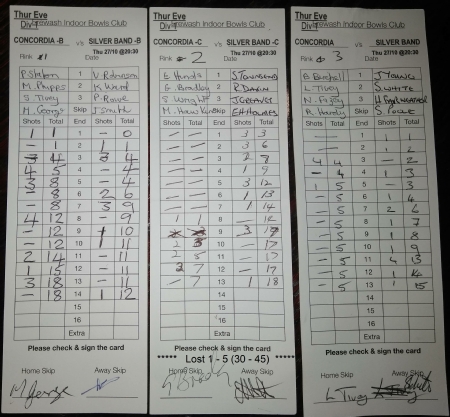 Thur Eve
Div 1 Erewash Indoor Bowls Club
CONCORDIA -B v/s SILVER BAND -B
Rink 1 Date Thu 27/10 @20:30
1 V Robinson
M. Phipps 2 K Ward
S Tivey 3 P. Rowe
M. George Skip J Smith
Shots Total Ends Shots Total
1 1 1 — 0
— 1 2 1 1
3 4 3 3 4
4 5 4 — 4
3 8 5 — 4
— 8 6 2 6
— 8 7 3 9
4 12 8 — 9
— 12 9 1 10
— 12 10 1 11
2 14 11 — 11
1 15 12 — 11
3 18 13 — 11
— 18 14 1 12
15
16
Extra
Please check & sign the card
Home Skip Away Skip
M George
Thur Eve
Div 1 Erewash Indoor Bowls Club
CONCORDIA -C v/s SILVER BAND -C
Rink 2 Date Thu 27/10 @20:30
E Hands 1 S Townsend
G. Bradley 2 R Dakin
S Wright 3 J Greaves
M. Hawkins Skip E Holmes
Shots Total Ends Shots Total
— — 1 3 3
— — 2 3 6
— — 3 2 8
— — 4 1 9
— — 5 3 12
— — 6 1 13
— — 7 1 14
1 1 8 — 14
9 3 17
2 3 10 — 17
2 5 11 — 17
2 7 12 — 17
— 7 13 1 18
14
15
16
Extra
Please check & sign the card
***** Lost 1 - 5 (30 - 45) *****
Home Skip Away Skip
Thur Eve
Div 1 Erewash Indoor Bowls Club
CONCORDIA v/s SILVER BAND
Rink 3 Date Thu 27/10 @20:30
B 1 J Young
L Tivey 2 S White
N 3 H
R Hardy Skip S Poole
Shots Total Ends Shots Total
— — 1 1 1
— — 2 1 2
4 4 3 — 2
— 4 4 1 3
1 5 5 — 3
— 5 6 1 4
— 5 7 2 6
— 5 8 1 7
— 5 9 1 8
— 5 10 1 9
— 5 11 4 13
— 5 12 1 14
— 5 13 1 15
14
15
16
Extra
Please check & sign the card
Home Skip Away Skip
L Tivey